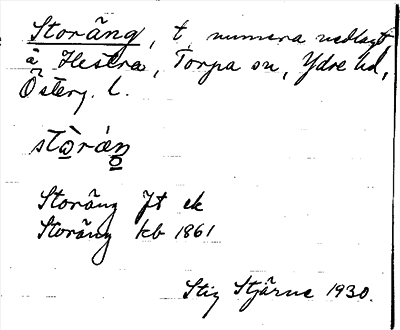 Storäng, t numera nedlagt
å Hestra, Torpa sn, Ydre hd,
Österg. l.
Storäng Jt ek
Storäng kb 1861
Stig Stjärne 1930.